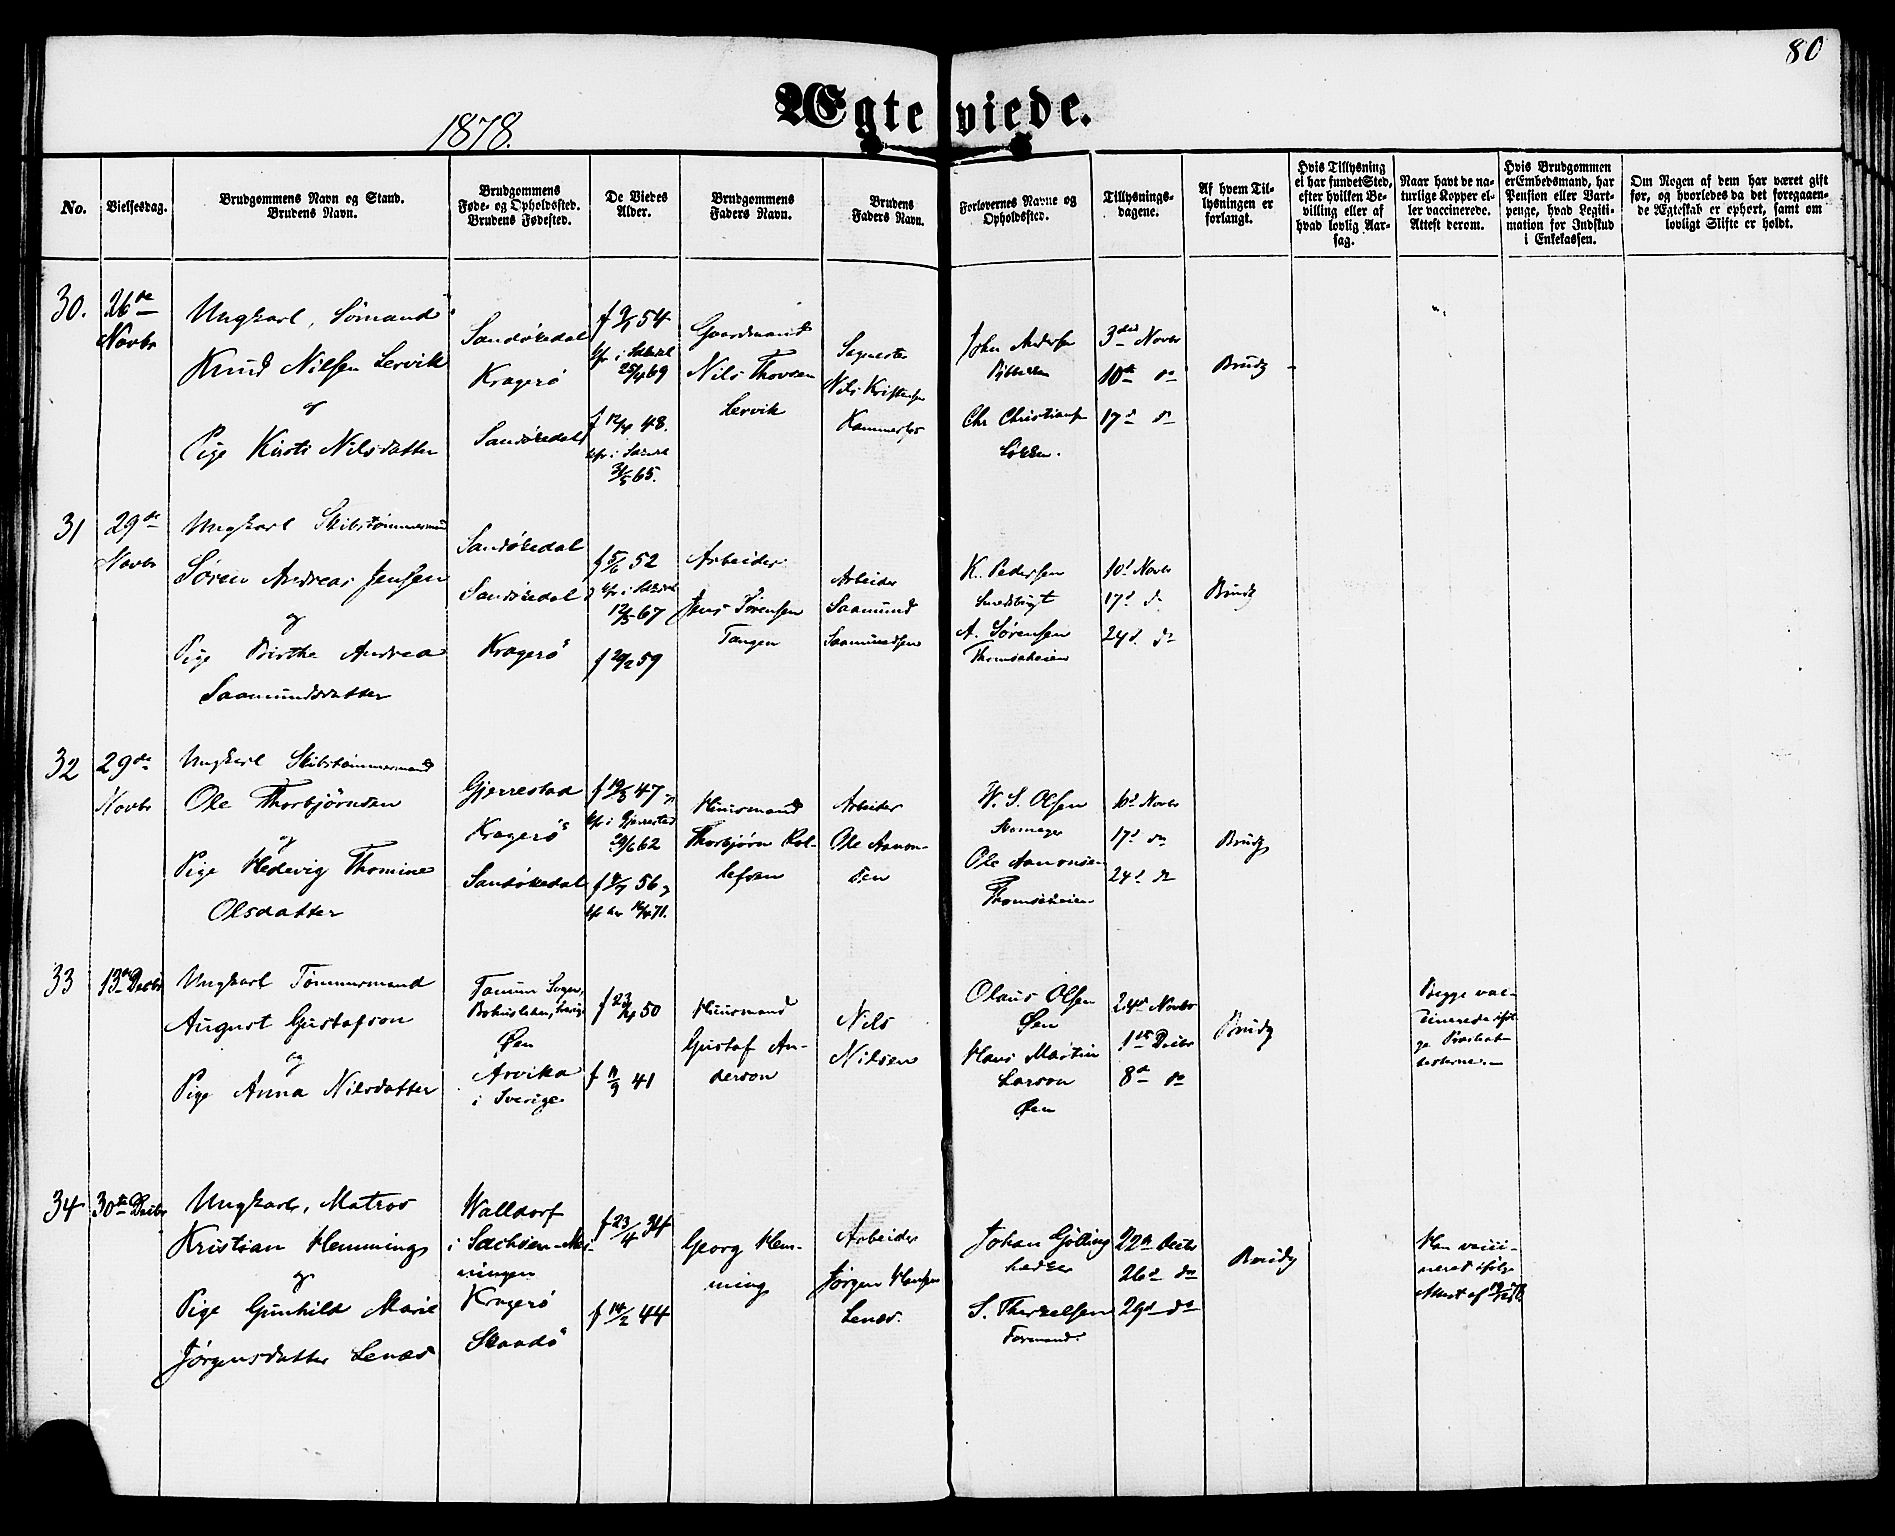 80
Ægteviede.
1878.
No.
Vielsesdag.
Brudgommens Navn og Stand.
Brudens Navn.
Brudgommens
Føde- og Opholdssted.
Brudens Fødested.
De Viedes
Alder.
Brudgommens
Faders Navn.
Brudens
Faders Navn.
Forlovernes Navne og
Opholdssted.
Tillysnings-
dagene.
Af hvem Til-
lysningen er
forlangt.
Hvis Tillysning
ei har fundet Sted,
efter hvilken Be-
villing eller af
hvad lovlig Aar-
sag.
Naar havt de na-
turlige Kopper el-
ler vaccinerede.
Attest derom.
Hvis Brudgommen
er Embedsmand, har
Pension eller Vart-
penge, hvad Legiti-
mation for Indskud
i Enkekassen.
Om Nogen af dem har været gift
før, og hvorledes da det foregaaen-
de Ægteskab er ophørt, samt om
lovligt Skifte er holdt.
30.
26de
Novbr
Ungkarl, Sømand
Knud Nilsen Lervik
og
Pige Kirsti Nilsdatter
Sandøkedal
Kragerø
Sandøkedal
54
25/4 69
48.
65.
Gaardmand
Nils Thovsen
Lervik
Nils Kristensen
Kammerfos
John Andersen
Chr Christiansen
Løkken.
3die Novbr
10de do
17de do
Brudg
31
29de
Novbr
Ungkarl Skibstømmermand
Søren Andreas Jensen
og
Pige Birthe Andrea
Saamundsdatter
Sandøkedal
Sandøkedal
Kragerø
f 5/6 52
67
f 20/2 59
Arbeider
Jens Sørensen
Tangen
Arbeider
Saamund
Saamundsen
K. Pedersen
Smedsbugt
A. Sørensen
Thomasheien
10d Novbr
17d do
24d do
Brudg
32
29de
Novbr
Ungkarl Skibstømmermand
Ole Thorbjørnsen
og
Pige Hedevig Thomine
Olsdatter
Gjerrestad
Kragerø
Sandøkedal
47
i Gjerrestad
62
56
71.
Huusmand
Thorbjørn Rol-
lefsen
Arbeider
Ole Aanon-
sen
W. S. Olsen
Skomager
Ole Aanonsen
Thomasheien
10d Novbr
17d do
24d do
Brudg
33
13de Decbr
Ungkarl Tømmermand
August Gustafson
og
Pige Anna Nilsdatter
Tanum Sogn,
Bohuslehn, Sverige
Øen
Arvika
i Sverige
50
f 11/9 41
Huusmand
Gustaf An-
derson
Nils
Nilsen
Olaus Olsen
Øen
Hans Martin
Larson
Øen
24de Novbr
1ste Decbr
8de do
Brudg
Begge vac-
34
30te Decbr
Ungkarl, Matros
Kristian Hemming
og
Pige Gunhild Marie
Jørgensdatter Lenæs
Walldorf
i Sachsen-Mei-
ningen
Kragerø
Skaadø
f 23/4 34
f 14/2 44
Georg Hem-
ming
Arbeider
Jørgen Hansen
Lenæs.
Johan Gølling
S. Therkelsen
Formand.
22de Decbr
26d do
29d do
Brudg
Han vacci-
neret ifølge
Attest af